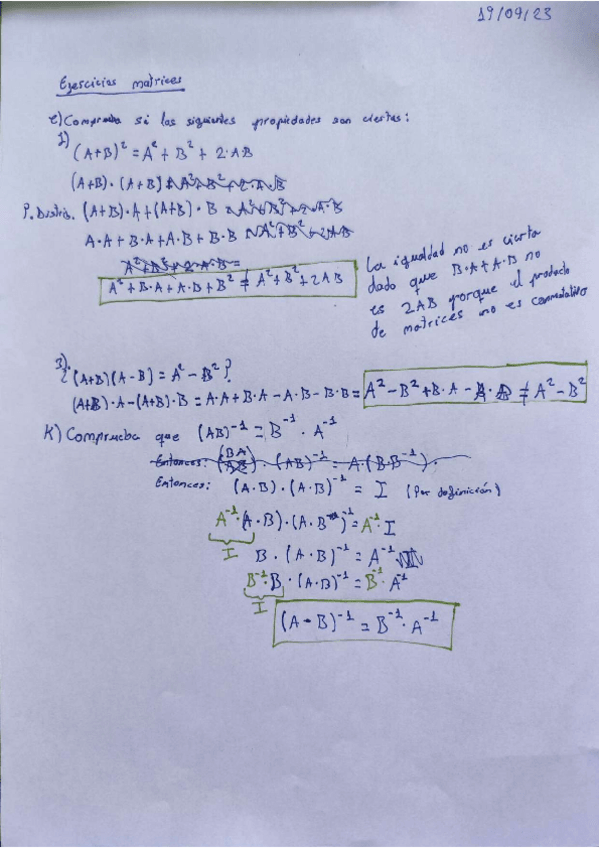 19/09/23
Ejercicios matrices
e) Comprueba si las siguientes propiedades son ciertas:
1)
(A+B)² = A² + B² + 2·AB
(A+B)·(A+B)
P. Distrib. (A+B)·A+(A+B)·B
A·A+B·A+A·B+B·B
A²+B²+2·A·B=
A²+B·A+A·B+B² ≠ A²+B²+2AB
La igualdad no es cierta
dado que B·A+A·B no
es 2AB porque el producto
de matrices no es conmutativo
3)
¿(A+B)(A-B) = A² - B²?
(A+B)·A-(A+B)·B = A·A+B·A-A·B-B·B = A²-B²+B·A-A·B ≠ A²-B²
K) Comprueba que (AB)⁻¹ = B⁻¹·A⁻¹
Entonces: (BA) (AB)·(AB)⁻¹ = A·(B·B⁻¹)·
Entonces: (A·B)·(A·B)⁻¹ = I (Por definición)
A⁻¹·(A·B)·(A·B)⁻¹ = A⁻¹·I
I
B·(A·B)⁻¹ = A⁻¹
B⁻¹·B·(A·B)⁻¹ = B⁻¹·A⁻¹
I
(A·B)⁻¹ = B⁻¹·A⁻¹